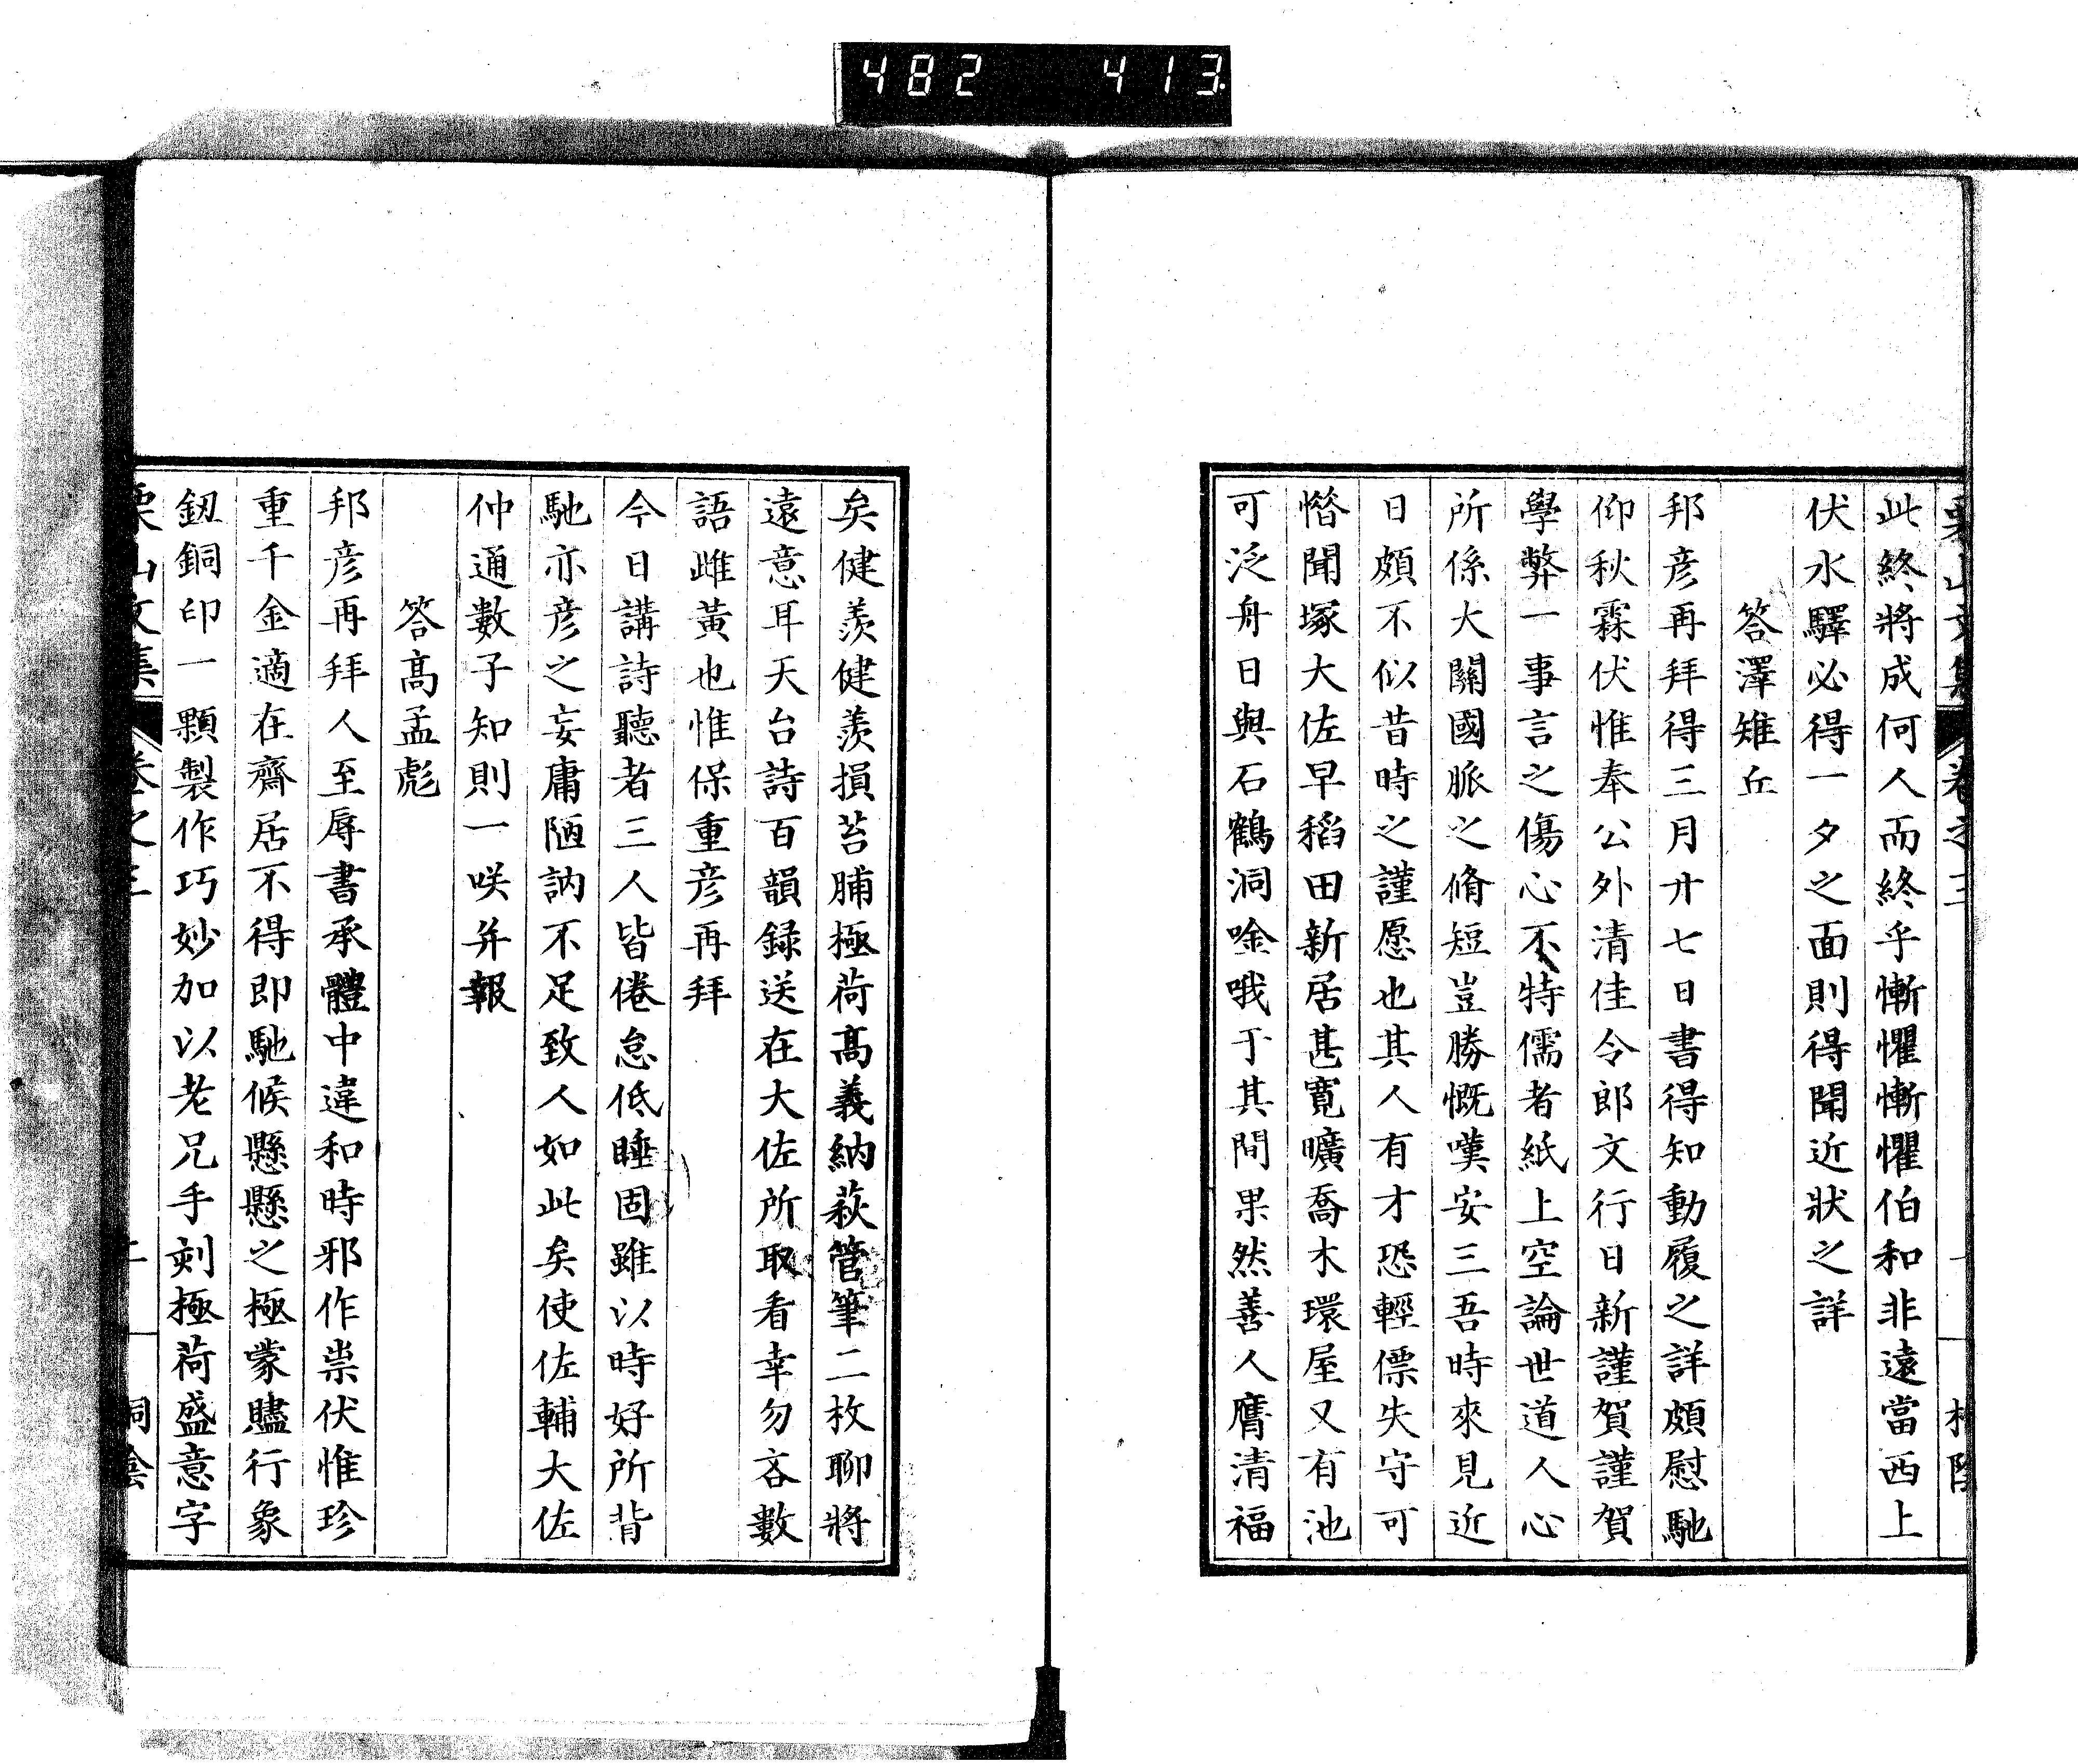 482 413
此終將成何人而終乎慚懼慚懼伯和非遠當西上
伏水驛必得一夕之面則得聞近狀之詳
答澤雉丘
邦彦再拜得三月廿七日書得知動履之詳頗慰馳
仰秋霖伏惟奉公外清佳令郎文行日新謹賀謹賀
學弊一事言之傷心不特儒者紙上空論世道人心
所係大關國脈之脩短豈勝慨嘆安三吾時來見近
日頗不似昔時之謹愿也其人有才恐輕僄失守可
惜聞塚大佐早稻田新居甚寬曠喬木環屋又有池
可泛舟日與石鶴洞唫哦于其間果然善人膺清福
矣健羨健羨損苔脯極荷髙義納萩管筆二枚聊將
遠意耳天台詩百韻録送在大佐所取看幸勿吝數
語雌黃也惟保重彦再拜
今日講詩聽者三人皆倦怠低睡固雖以時好所背
馳亦彦之妄庸陋訥不足致人如此矣使佐輔大佐
仲通數子知則一咲并報
答髙孟彪
邦彦再拜人至辱書承體中違和時邪作祟伏惟珍
重千金適在齋居不得即馳候懸懸之極蒙贐行象
釰銅印一顆製作巧妙加以老兄手刻極荷盛意字
栗山文集 卷之三